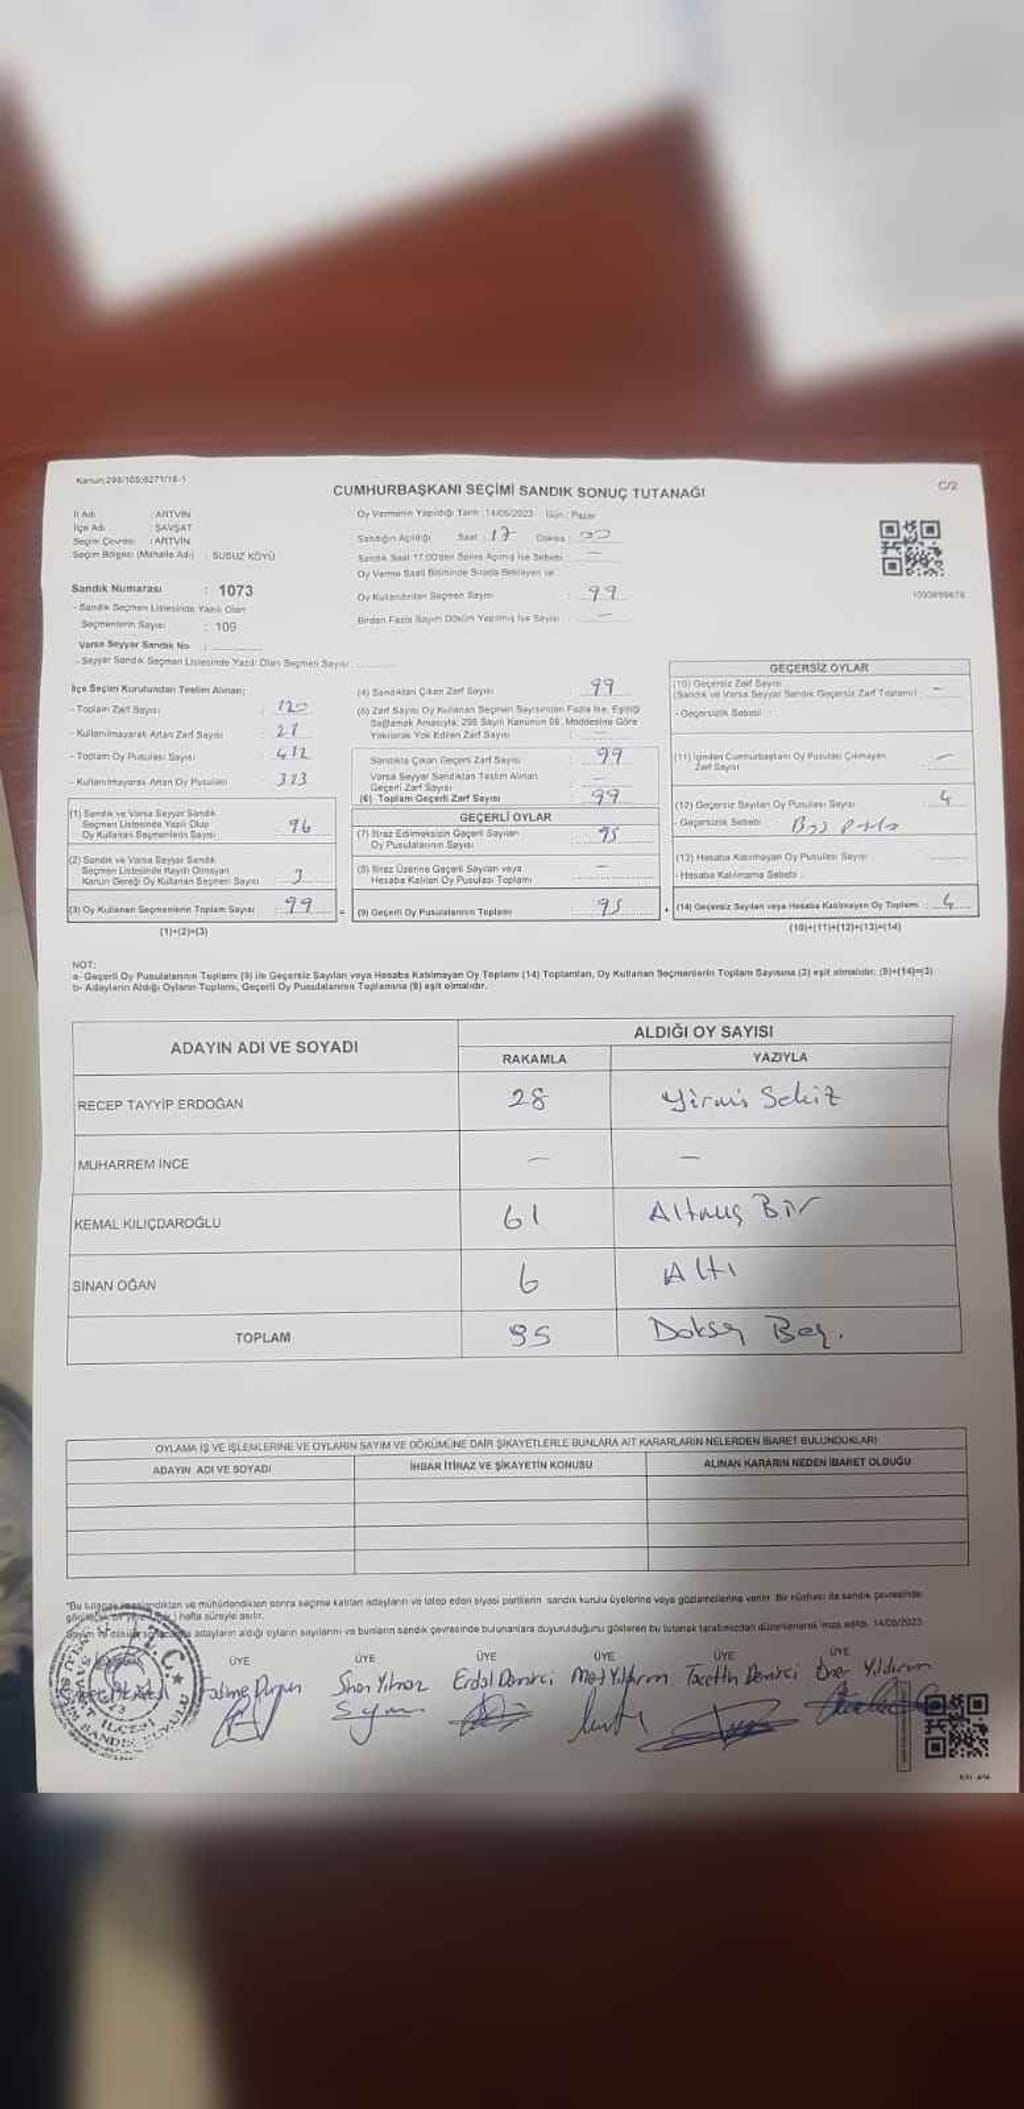 Kanun:298/105;6271/18-1
C/2
CUMHURBAŞKANI SEÇİMİ SANDIK SONUÇ TUTANAĞI
İl Adı : ARTVİN
İlçe Adı : ŞAVŞAT
Seçim Çevresi : ARTVİN
Seçim Bölgesi (Mahalle Adı) : SUSUZ KÖYÜ
Sandık Numarası : 1073
- Sandık Seçmen Listesinde Yazılı Olan
Seçmenlerin Sayısı : 109
Varsa Seyyar Sandık No :
- Seyyar Sandık Seçmen Listesinde Yazılı Olan Seçmen Sayısı
Oy Vermenin Yapıldığı Tarih : 14/05/2023 Gün : Pazar
Sandığın Açıldığı Saat : 17 Dakika : 00
Sandık Saat 17:00'den Sonra Açılmış İse Sebebi : —
Oy Verme Saati Bitiminde Sırada Bekleyen ve
Oy Kullandırılan Seçmen Sayısı : 99
Birden Fazla Sayım Döküm Yapılmış İse Sayısı : —
İlçe Seçim Kurulundan Teslim Alınan;
- Toplam Zarf Sayısı : 120
- Kullanılmayarak Artan Zarf Sayısı : 21
- Toplam Oy Pusulası Sayısı : 412
- Kullanılmayarak Artan Oy Pusulası : 313
(1) Sandık ve Varsa Seyyar Sandık
Seçmen Listesinde Yazılı Olup
Oy Kullanan Seçmenlerin Sayısı : 96
(2) Sandık ve Varsa Seyyar Sandık
Seçmen Listesinde Kayıtlı Olmayan
Kanun Gereği Oy Kullanan Seçmen Sayısı : 3
(3) Oy Kullanan Seçmenlerin Toplam Sayısı : 99
(1)+(2)=(3)
(4) Sandıktan Çıkan Zarf Sayısı : 99
(5) Zarf Sayısı Oy Kullanan Seçmen Sayısından Fazla İse, Eşitliği
Sağlamak Amacıyla, 298 Sayılı Kanunun 98. Maddesine Göre
Yakılarak Yok Edilen Zarf Sayısı : —
Sandıkta Çıkan Geçerli Zarf Sayısı : 99
Varsa Seyyar Sandıktan Teslim Alınan
Geçerli Zarf Sayısı : —
(6) Toplam Geçerli Zarf Sayısı : 99
GEÇERLİ OYLAR
(7) İtiraz Edilmeksizin Geçerli Sayılan
Oy Pusulalarının Sayısı : 95
(8) İtiraz Üzerine Geçerli Sayılan veya
Hesaba Katılan Oy Pusulası Toplamı : —
= (9) Geçerli Oy Pusulalarının Toplamı : 95
GEÇERSİZ OYLAR
(10) Geçersiz Zarf Sayısı
(Sandık ve Varsa Seyyar Sandık Geçersiz Zarf Toplamı) : —
- Geçersizlik Sebebi :
(11) İçinden Cumhurbaşkanı Oy Pusulası Çıkmayan
Zarf Sayısı : —
(12) Geçersiz Sayılan Oy Pusulası Sayısı : 4
- Geçersizlik Sebebi : Boş
(13) Hesaba Katılmayan Oy Pusulası Sayısı :
- Hesaba Katılmama Sebebi :
+ (14) Geçersiz Sayılan veya Hesaba Katılmayan Oy Toplamı : 4
(10)+(11)+(12)+(13)=(14)
NOT:
a- Geçerli Oy Pusulalarının Toplamı (9) ile Geçersiz Sayılan veya Hesaba Katılmayan Oy Toplamı (14) Toplamları, Oy Kullanan Seçmenlerin Toplam Sayısına (3) eşit olmalıdır. (9)+(14)=(3)
b- Adayların Aldığı Oyların Toplamı, Geçerli Oy Pusulalarının Toplamına (9) eşit olmalıdır.
ADAYIN ADI VE SOYADI
ALDIĞI OY SAYISI
RAKAMLA YAZIYLA
RECEP TAYYİP ERDOĞAN 28 Yirmi Sekiz
MUHARREM İNCE — —
KEMAL KILIÇDAROĞLU 61 Altmış Bir
SİNAN OĞAN 6 Altı
TOPLAM 95 Doksan Beş.
OYLAMA İŞ VE İŞLEMLERİNE VE OYLARIN SAYIM VE DÖKÜMÜNE DAİR ŞİKAYETLERLE BUNLARA AİT KARARLARIN NELERDEN İBARET BULUNDUKLARI
ADAYIN ADI VE SOYADI İHBAR İTİRAZ VE ŞİKAYETİN KONUSU ALINAN KARARIN NEDEN İBARET OLDUĞU
"Bu tutanak imzalandıktan ve mühürlendikten sonra seçime katılan adayların ve talep eden siyasi partilerin sandık kurulu üyelerine veya gözlemcilerine verilir. Bir nüshası da sandık çevresinde
hafta süreyle asılır.
adayların aldığı oyların sayılarını ve bunların sandık çevresinde bulunanlara duyurulduğunu gösteren bu tutanak tarafımızdan düzenlenerek imza edildi. 14/05/2023
ÜYE ÜYE ÜYE ÜYE ÜYE ÜYE
Yılmaz Erdal Demirci Yıldırım Tacettin Demirci Öner Yıldırım
T.C.